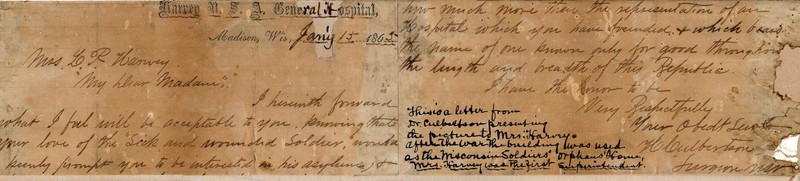 Harvey U. S. A. General Hospital,
Madison, Wis, Jan'y 15 1865
Mrs. L. P. Harvey
My dear Madam,
I herewith forward
what I feel will be acceptable to you, knowing that
your love of the Sick and wounded Soldier, would
surely prompt you to be interested in his asylums, &
how much more then the representation of an
Hospital which you have founded, & which bears
the name of one known only for good throughout
the length and breadth of this Republic.
I have the honor to be
Very Respectfully
Your Obedt Servt
H Culbertson
Surgeon
This is a letter from
Dr. Culbertson presenting
the picture to Mrs. Harvey.
After the war the building was used
as the Wisconsin Soldiers' Orphans' Home,
Mrs. Harvey was the first Superintendent.